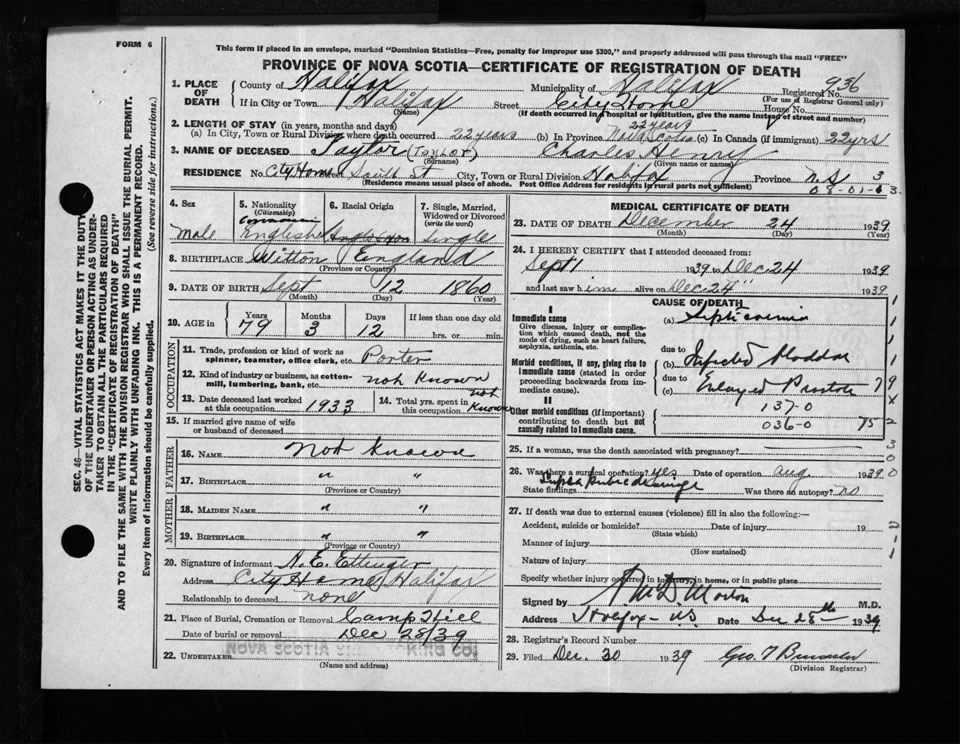 FORM 6
This form if placed in an envelope, marked "Dominion Statistics—Free, penalty for improper use $300," and properly addressed will pass through the mail "FREE"
PROVINCE OF NOVA SCOTIA—CERTIFICATE OF REGISTRATION OF DEATH
1. PLACE OF DEATH County of Halifax Municipality of Halifax Registered No. 936
(For use of Registrar General only)
If in City or Town Halifax Street City Home House No.
(Name) (If death occurred in a hospital or institution, give the name instead of street and number)
2. LENGTH OF STAY (in years, months and days)
(a) In City, Town or Rural Division where death occurred 22 years (b) In Province 22 years Nova Scotia (c) In Canada (if immigrant) 22 yrs
3. NAME OF DECEASED Taylor (TAYLOR) Charles Henry
(Surname) (Given name or names)
RESIDENCE No. City Home South St City, Town or Rural Division Halifax Province N.S 3
(Residence means usual place of abode. Post Office Address for residents in rural parts not sufficient) 08-01-63
4. Sex 5. Nationality (Citizenship) 6. Racial Origin 7. Single, Married, Widowed or Divorced (write the word)
Male English Single
8. BIRTHPLACE England
(Province or Country)
9. DATE OF BIRTH Sept 12 1860
(Month) (Day) (Year)
10. AGE in Years Months Days If less than one day old
79 3 12 hrs. or min.
OCCUPATION
11. Trade, profession or kind of work as spinner, teamster, office clerk, etc. Porter
12. Kind of industry or business, as cotton-mill, lumbering, bank, etc. not known
13. Date deceased last worked at this occupation 1933 14. Total yrs. spent in this occupation not known
15. If married give name of wife or husband of deceased
FATHER
16. NAME Not known
17. BIRTHPLACE " "
(Province or Country)
MOTHER
18. MAIDEN NAME " "
19. BIRTHPLACE " "
(Province or Country)
20. Signature of informant H. E. Ettinger
Address City Home Halifax
Relationship to deceased none
21. Place of Burial, Cremation or Removal Camp Hill
Date of burial or removal Dec 28/39
22. UNDERTAKER NOVA SCOTIA KING CO.
(Name and address)
MEDICAL CERTIFICATE OF DEATH
23. DATE OF DEATH December 24 1939
(Month) (Day) (Year)
24. I HEREBY CERTIFY that I attended deceased from
Sept 1 1939 to Dec. 24 1939
and last saw him alive on Dec 24" 1939
CAUSE OF DEATH
I
Immediate cause (a) Septicaemia
Give disease, injury or complication which caused death, not the mode of dying, such as heart failure, asphyxia, asthenia, etc.
due to
Morbid conditions, if any, giving rise to immediate cause (stated in order proceeding backwards from immediate cause) (b) Infected Bladder
due to
(c) Enlarged Prostate
II
Other morbid conditions (if important) contributing to death but not causally related to immediate cause.
137-0
036-0 75
25. If a woman, was the death associated with pregnancy?
26. Was there a surgical operation? yes Date of operation Aug 1939
State findings Supra Pubic drainage Was there an autopsy? no
27. If death was due to external causes (violence) fill in also the following:—
Accident, suicide or homicide? Date of injury 19
(State which)
Manner of injury
(How sustained)
Nature of injury
Specify whether injury occurred in industry, in home, or in public place
Signed by Morton M.D.
Address Halifax - N.S. Date Dec 28th 1939
28. Registrar's Record Number
29. Filed Dec. 30 1939 Geo. T
(Division Registrar)
SEC. 46—VITAL STATISTICS ACT MAKES IT THE DUTY OF THE UNDERTAKER OR PERSON ACTING AS UNDERTAKER TO OBTAIN ALL THE PARTICULARS REQUIRED IN THE "CERTIFICATE OF REGISTRATION OF DEATH" AND TO FILE THE SAME WITH THE DIVISION REGISTRAR WHO SHALL ISSUE THE BURIAL PERMIT.
WRITE PLAINLY WITH UNFADING INK. THIS IS A PERMANENT RECORD.
Every item of information should be carefully supplied. (See reverse side for instructions.)